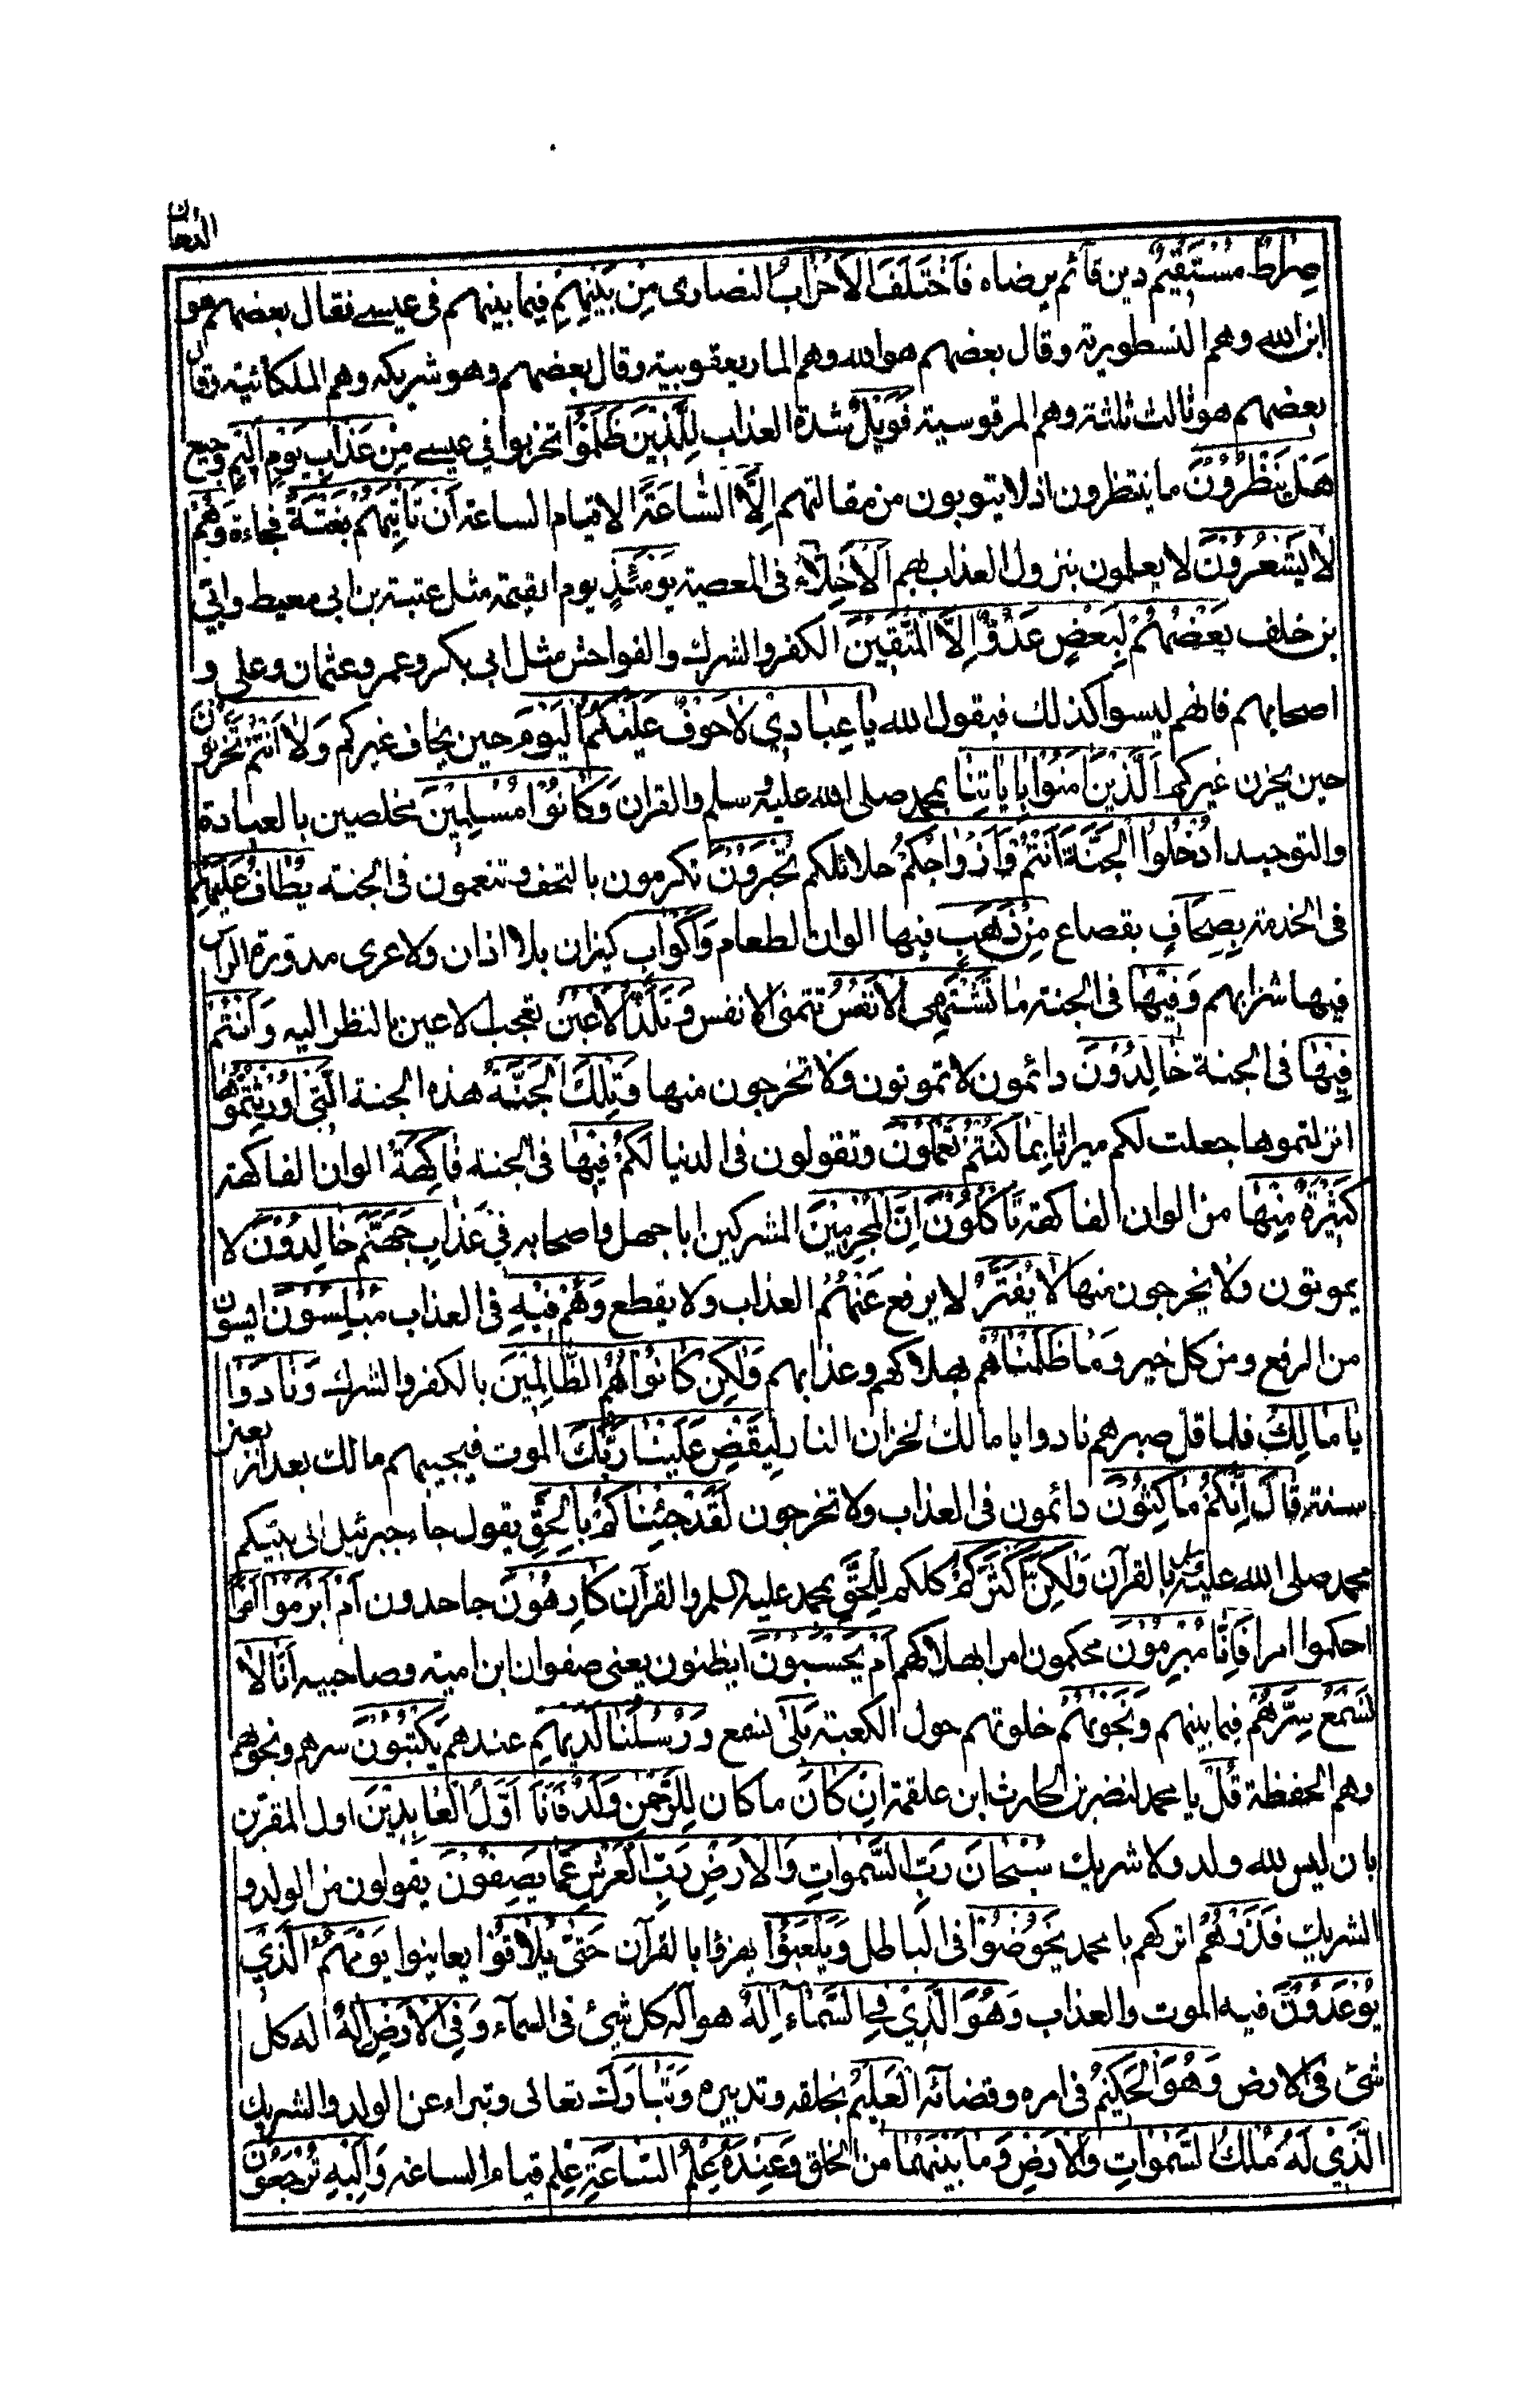 الدخان
صِرَاطٌ مُسْتَقِيْمٌ دين قائم يرضاه فَاخْتَلَفَ الْاَحْزَابُ النصارى مِنْ بَيْنِهِمْ فيما بينهم فى عيسى فقال بعضهم هو
ابن الله وهم النسطورية وقال بعضهم هو الله وهم الماريعقوبية وقال بعضهم وهو شريكه وهم الملكائية وقال
بعضهم هو ثالث ثلثة وهم المرقوسية فَوَيْلٌ شدة العذاب لِلَّذِيْنَ ظَلَمُوْا تحزبوا فى عيسى مِنْ عَذَابِ يَوْمٍ اَلِيْمٍ وجيع
هَلْ يَنْظُرُوْنَ ما ينتظرون اذ لا يتوبون من مقالتهم اِلَّا السَّاعَةَ الا قيام الساعة اَنْ تَاْتِيَهُمْ بَغْتَةً فجاءة وَهُمْ
لَا يَشْعُرُوْنَ لا يعلمون بنزول العذاب بهم اَلْاَخِلَّاءُ فى المعصية يَوْمَئِذٍ يوم القيمة مثل عتبة بن ابى معيط وابى
بن خلف بَعْضُهُمْ لِبَعْضٍ عَدُوٌّ اِلَّا الْمُتَّقِيْنَ الكفر والشرك والفواحش مثل ابى بكر وعمر وعثمان وعلى و
اصحابهم فانهم ليسوا كذلك فيقول الله يَا عِبَادِيْ لَا خَوْفٌ عَلَيْكُمُ الْيَوْمَ حين يخاف غيركم وَلَا اَنْتُمْ تَحْزَنُوْنَ
حين يحزن غيركم اَلَّذِيْنَ اٰمَنُوْا بِاٰيَاتِنَا بمحمد صلى الله عليه وسلم والقران وَكَانُوْا مُسْلِمِيْنَ مخلصين بالعبادة
والتوحيد اُدْخُلُوا الْجَنَّةَ اَنْتُمْ وَاَزْوَاجُكُمْ حلائلكم تُحْبَرُوْنَ تكرمون بالتحف وتنعمون فى الجنة يُطَافُ عَلَيْهِمْ
فى الخدمة بِصِحَافٍ بقصاع مِنْ ذَهَبٍ فيها الوان الطعام وَاَكْوَابٍ كيزان بلا اذان ولا عرى مدورة الراس
فيها شرابهم وَفِيْهَا فى الجنة مَا تَشْتَهِيْ الْاَنْفُسُ تتمنى الانفس وَتَلَذُّ الْاَعْيُنُ تعجب الاعين بالنظر اليه وَاَنْتُمْ
فِيْهَا فى الجنة خَالِدُوْنَ دائمون لا تموتون ولا تخرجون منها وَتِلْكَ الْجَنَّةُ هذه الجنة الَّتِيْ اُوْرِثْتُمُوْهَا
انزلتموها جعلت لكم ميراثا بِمَا كُنْتُمْ تَعْمَلُوْنَ وتقولون فى الدنيا لَكُمْ فِيْهَا فى الجنة فَاكِهَةٌ الوان الفاكهة
كَثِيْرَةٌ مِنْهَا من الوان الفاكهة تَاْكُلُوْنَ اِنَّ الْمُجْرِمِيْنَ المشركين ابا جهل واصحابه فِيْ عَذَابِ جَهَنَّمَ خَالِدُوْنَ لا
يموتون ولا يخرجون منها لَا يُفَتَّرُ لا يرفع عَنْهُمْ العذاب ولا يقطع وَهُمْ فِيْهِ فى العذاب مُبْلِسُوْنَ ايسون
من الرفع ومن كل خير وَمَا ظَلَمْنَاهُمْ بهلاكهم وعذابهم وَلٰكِنْ كَانُوْا هُمُ الظَّالِمِيْنَ بالكفر والشرك وَنَادَوْا
يَا مَالِكُ فلما قل صبرهم نادوا يا مالك لخزان النار لِيَقْضِ عَلَيْنَا رَبُّكَ الموت فيجيبهم مالك بعد اربعين
سنة قَالَ اِنَّكُمْ مَاكِثُوْنَ دائمون فى العذاب ولا تخرجون لَقَدْ جِئْنَاكُمْ بِالْحَقِّ يقول جاء جبرئيل الى نبيكم
محمد صلى الله عليه وسلم بالقرآن وَلٰكِنَّ اَكْثَرَكُمْ كلكم لِلْحَقِّ بمحمد عليه السلم والقرآن كَارِهُوْنَ جاحدون اَمْ اَبْرَمُوْا اَمْرًا
احكموا امرا فَاِنَّا مُبْرِمُوْنَ محكمون امرا بهلاكهم اَمْ يَحْسَبُوْنَ ايظنون يعنى صفوان ابن امية وصاحبيه اَنَّا لَا
نَسْمَعُ سِرَّهُمْ فيما بينهم وَنَجْوٰهُمْ خلوتهم حول الكعبة بَلٰى نسمع وَرُسُلُنَا لَدَيْهِمْ عندهم يَكْتُبُوْنَ سرهم ونجوهم
وهم الحفظة قُلْ يا محمد لنضر بن الحارث ابن علقمة اِنْ كَانَ ما كان لِلرَّحْمٰنِ وَلَدٌ فَاَنَا اَوَّلُ الْعَابِدِيْنَ اول المقرين
بان ليس لله ولد ولا شريك سُبْحَانَ رَبِّ السَّمٰوَاتِ وَالْاَرْضِ رَبِّ الْعَرْشِ عَمَّا يَصِفُوْنَ يقولون من الولد و
الشريك فَذَرْهُمْ اتركهم يا محمد يَخُوْضُوْا فى الباطل وَيَلْعَبُوْا يهزؤا بالقرآن حَتّٰى يُلَاقُوْا يعاينوا يَوْمَهُمُ الَّذِيْ
يُوْعَدُوْنَ فيه الموت والعذاب وَهُوَ الَّذِيْ فِي السَّمَآءِ اِلٰهٌ هو اله كل شيئ فى السمآء وَفِي الْاَرْضِ اِلٰهٌ اله كل
شئ فى الارض وَهُوَ الْحَكِيْمُ فى امره وقضائه الْعَلِيْمُ بخلقه وتدبيره وَتَبَارَكَ تعالى وتبراء عن الولد والشريك
الَّذِيْ لَهٗ مُلْكُ السَّمٰوَاتِ وَالْاَرْضِ وَمَا بَيْنَهُمَا من الخلق وَعِنْدَهٗ عِلْمُ السَّاعَةِ علم قيام الساعة وَاِلَيْهِ تُرْجَعُوْنَ